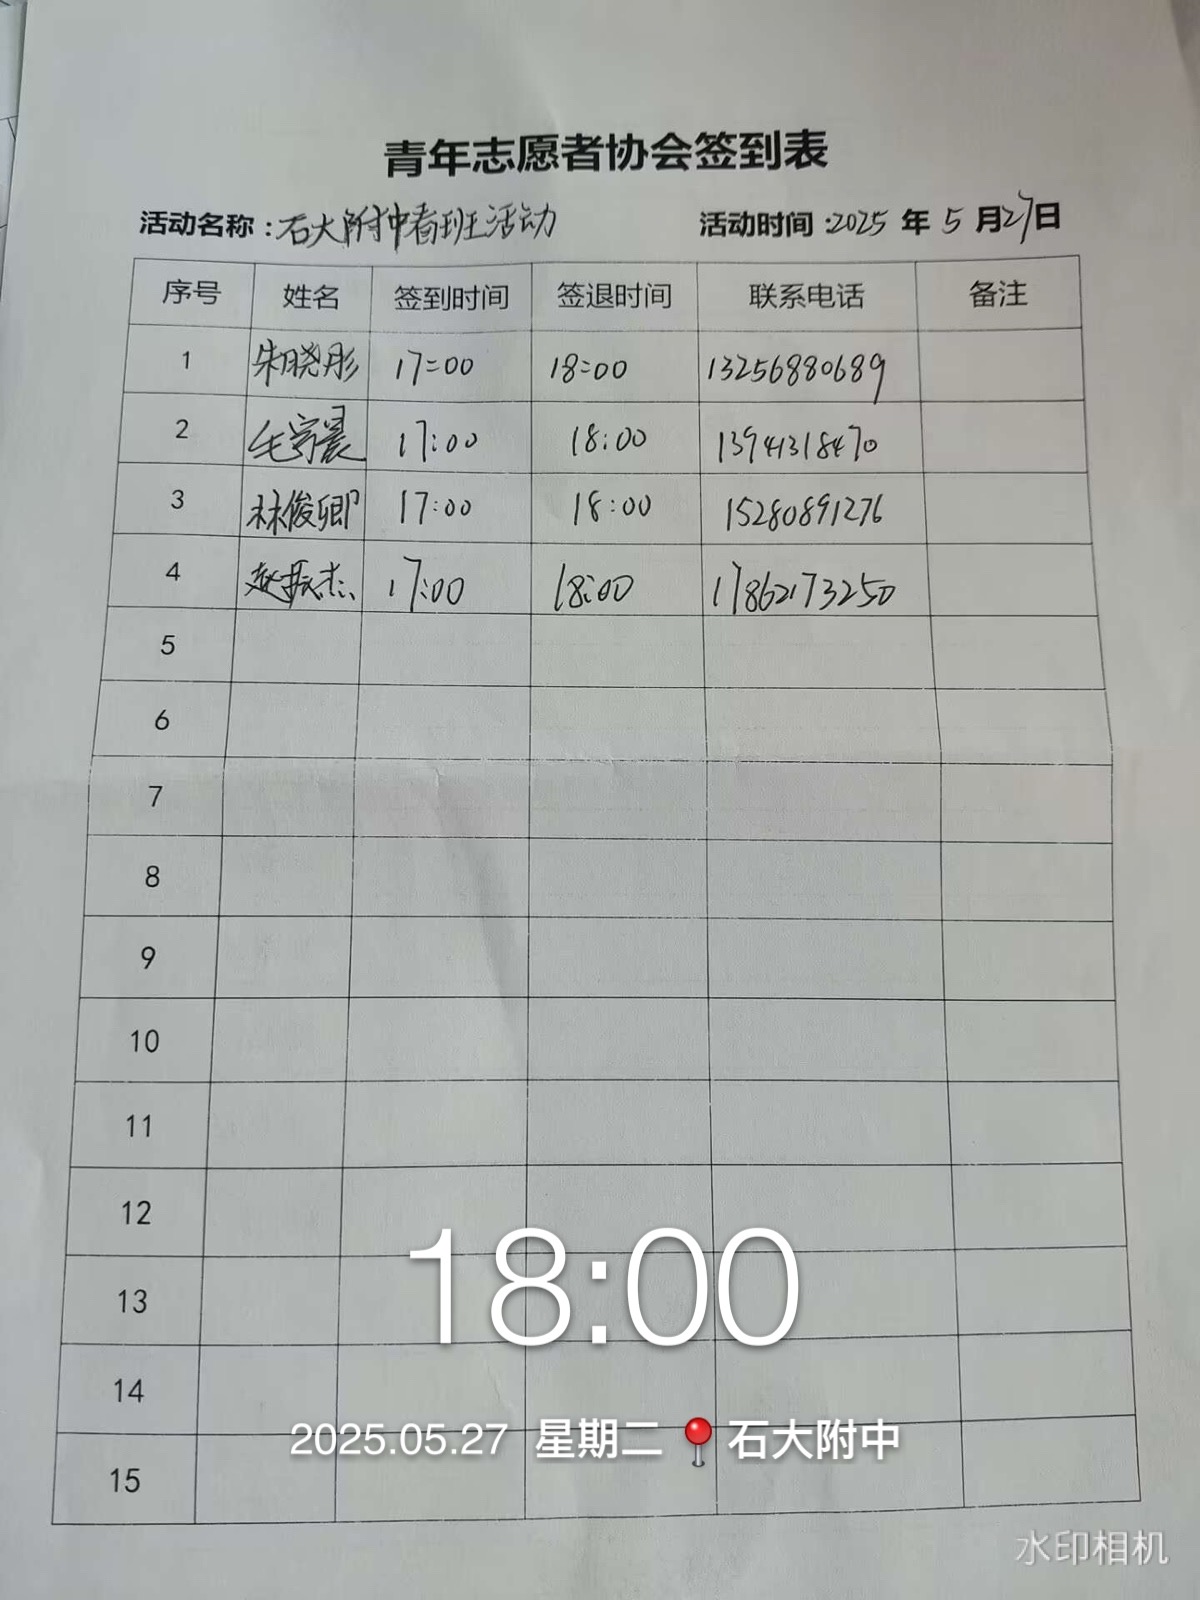 青年志愿者协会签到表
活动名称：石大附中看班活动 活动时间：2025 年 5 月27日
序号 姓名 签到时间 签退时间 联系电话 备注
1 朱晓彤 17:00 18:00 13256880689
2 17:00 18:00 13941318470
3 林俊卿 17:00 18:00 15280891276
4 赵振杰 17:00 18:00 17862173250
5
6
7
8
9
10
11
12
13
14
15
18:00
2025.05.27 星期二 石大附中
水印相机